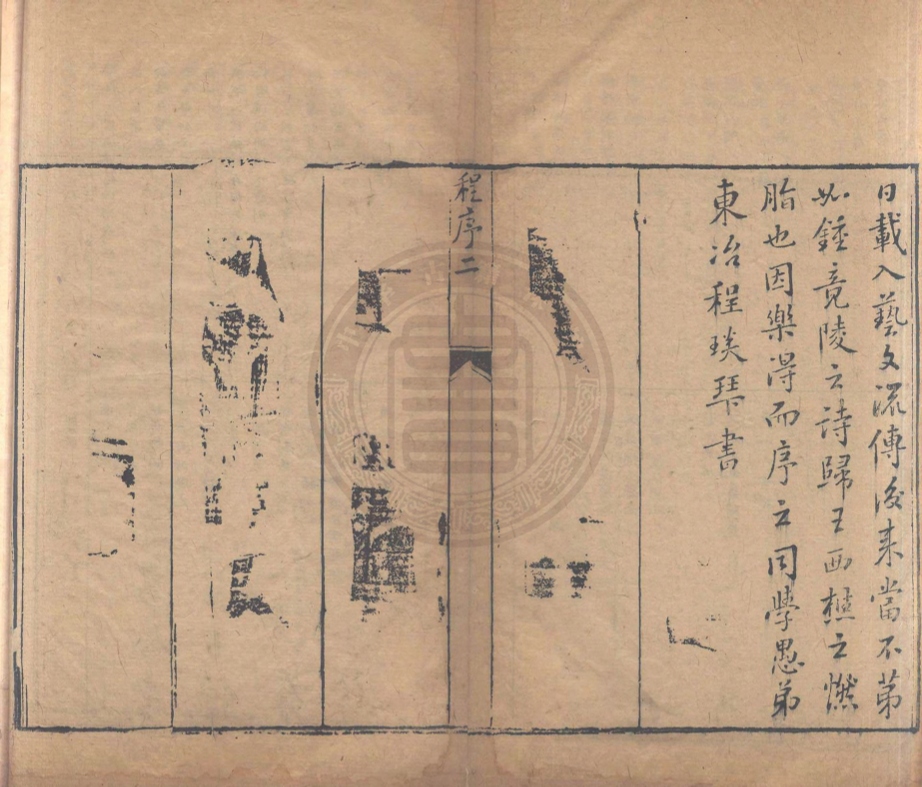 日載入藝文流傳後來當不第
如鍾竟陵之詩歸王西樵之燃
脂也因樂得而序之同學愚弟
東冶程琰琴書
程序二